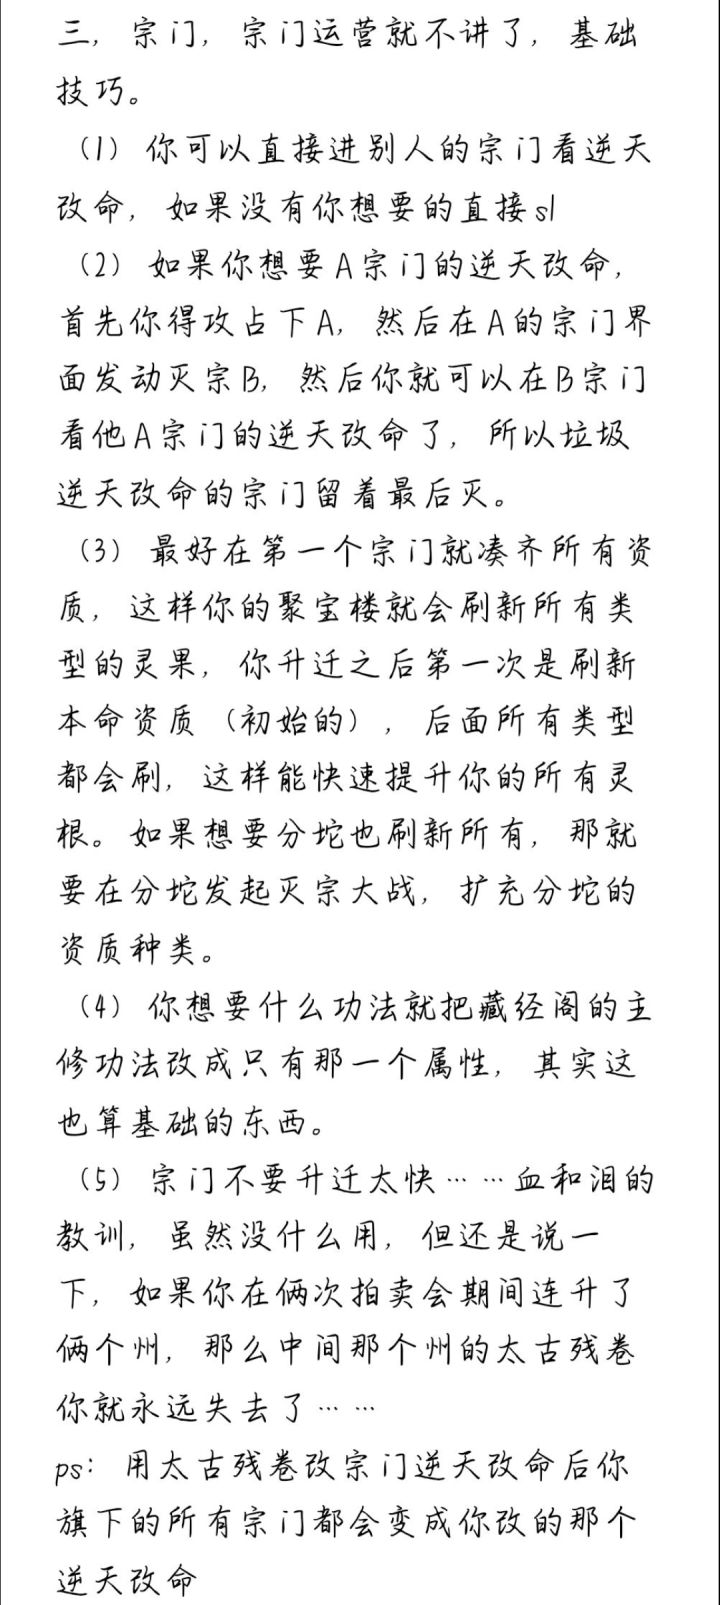 三，宗门，宗门运营就不讲了，基础
技巧。
（1）你可以直接进别人的宗门看逆天
改命，如果没有你想要的直接sl
（2）如果你想要A宗门的逆天改命，
首先你得攻占下A，然后在A的宗门界
面发动灭宗B，然后你就可以在B宗门
看他A宗门的逆天改命了，所以垃圾
逆天改命的宗门留着最后灭。
（3）最好在第一个宗门就凑齐所有资
质，这样你的聚宝楼就会刷新所有类
型的灵果，你升迁之后第一次是刷新
本命资质（初始的），后面所有类型
都会刷，这样能快速提升你的所有灵
根。如果想要分坨也刷新所有，那就
要在分坨发起灭宗大战，扩充分坨的
资质种类。
（4）你想要什么功法就把藏经阁的主
修功法改成只有那一个属性，其实这
也算基础的东西。
（5）宗门不要升迁太快……血和泪的
教训，虽然没什么用，但还是说一
下，如果你在俩次拍卖会期间连升了
俩个州，那么中间那个州的太古残卷
你就永远失去了……
ps：用太古残卷改宗门逆天改命后你
旗下的所有宗门都会变成你改的那个
逆天改命